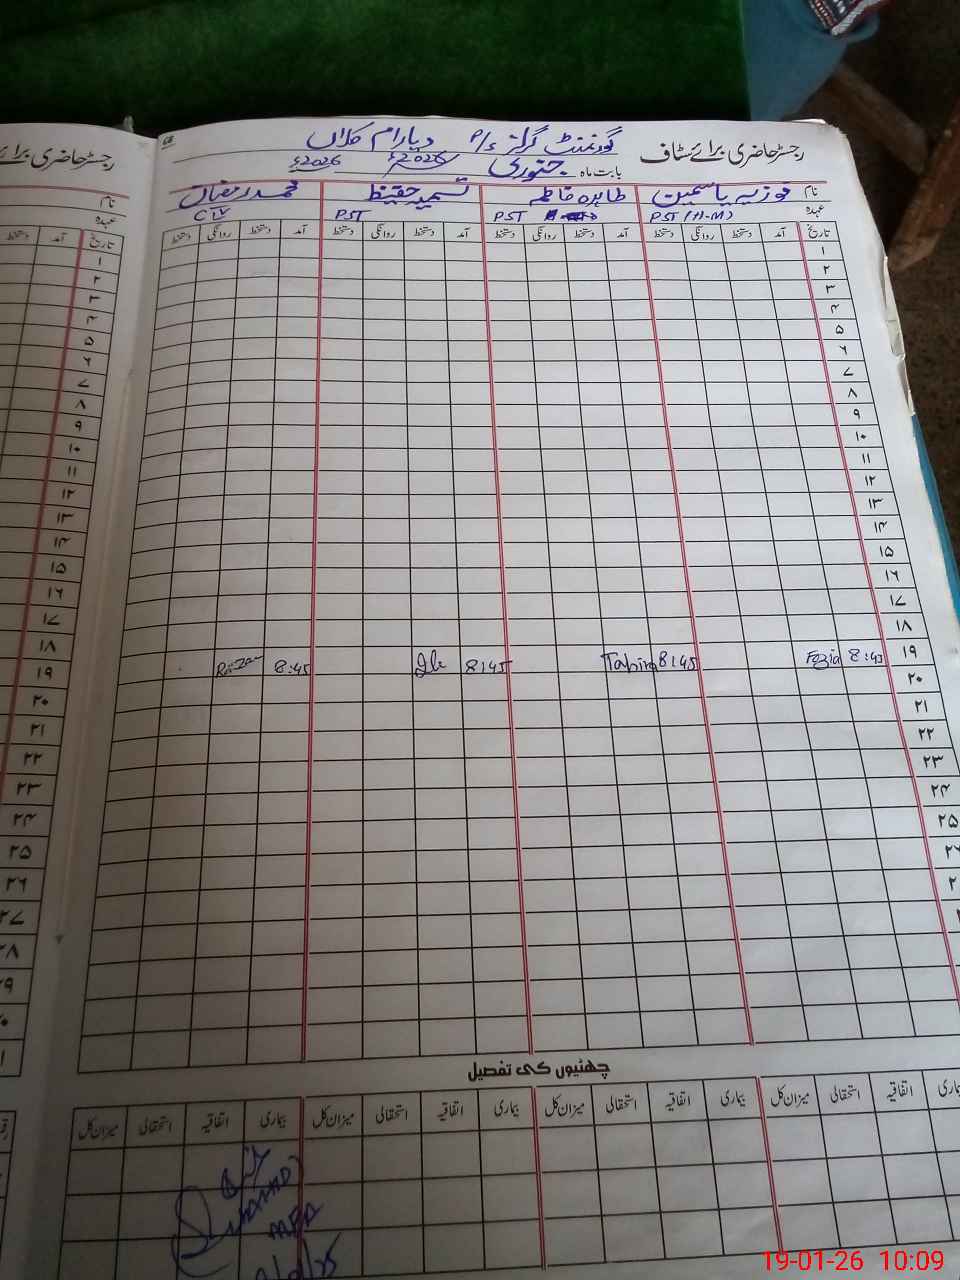 رجسٹر حاضری برائے سٹاف
گورنمنٹ گرلز P/S دیارام کلاں
بابت ماہ جنوری 2026ء 2026ء
نام فوزیہ یاسمین طاہرہ فاطمہ تسمیہ حفیظ محمد رمضان
عہدہ PST (H-M) PST PST
تاریخ آمد دستخط روانگی دستخط آمد دستخط روانگی دستخط آمد دستخط روانگی دستخط آمد دستخط روانگی دستخط
۱
۲
۳
۴
۵
۶
۷
۸
۹
۱۰
۱۱
۱۲
۱۳
۱۴
۱۵
۱۶
۱۷
۱۸
۱۹ 8:45 Fozia 8:45 Tahira 8:45 8:45
۲۰
۲۱
۲۲
۲۳
۲۴
۲۵
چھٹیوں کی تفصیل
بیماری اتفاقیہ استحقاقی میزان کل بیماری اتفاقیہ استحقاقی میزان کل بیماری اتفاقیہ استحقاقی میزان کل بیماری اتفاقیہ استحقاقی میزان کل
رجسٹر حاضری برائے
نام
عہدہ
تاریخ آمد دستخط
۱
۲
۳
۴
۵
۶
۷
۸
۹
۱۰
۱۱
۱۲
۱۳
۱۴
۱۵
۱۶
۱۷
۱۸
۱۹
۲۰
۲۱
۲۲
۲۳
۲۴
۲۵
۲۶
۲۷
۲۸
۲۹
19-01-26 10:09